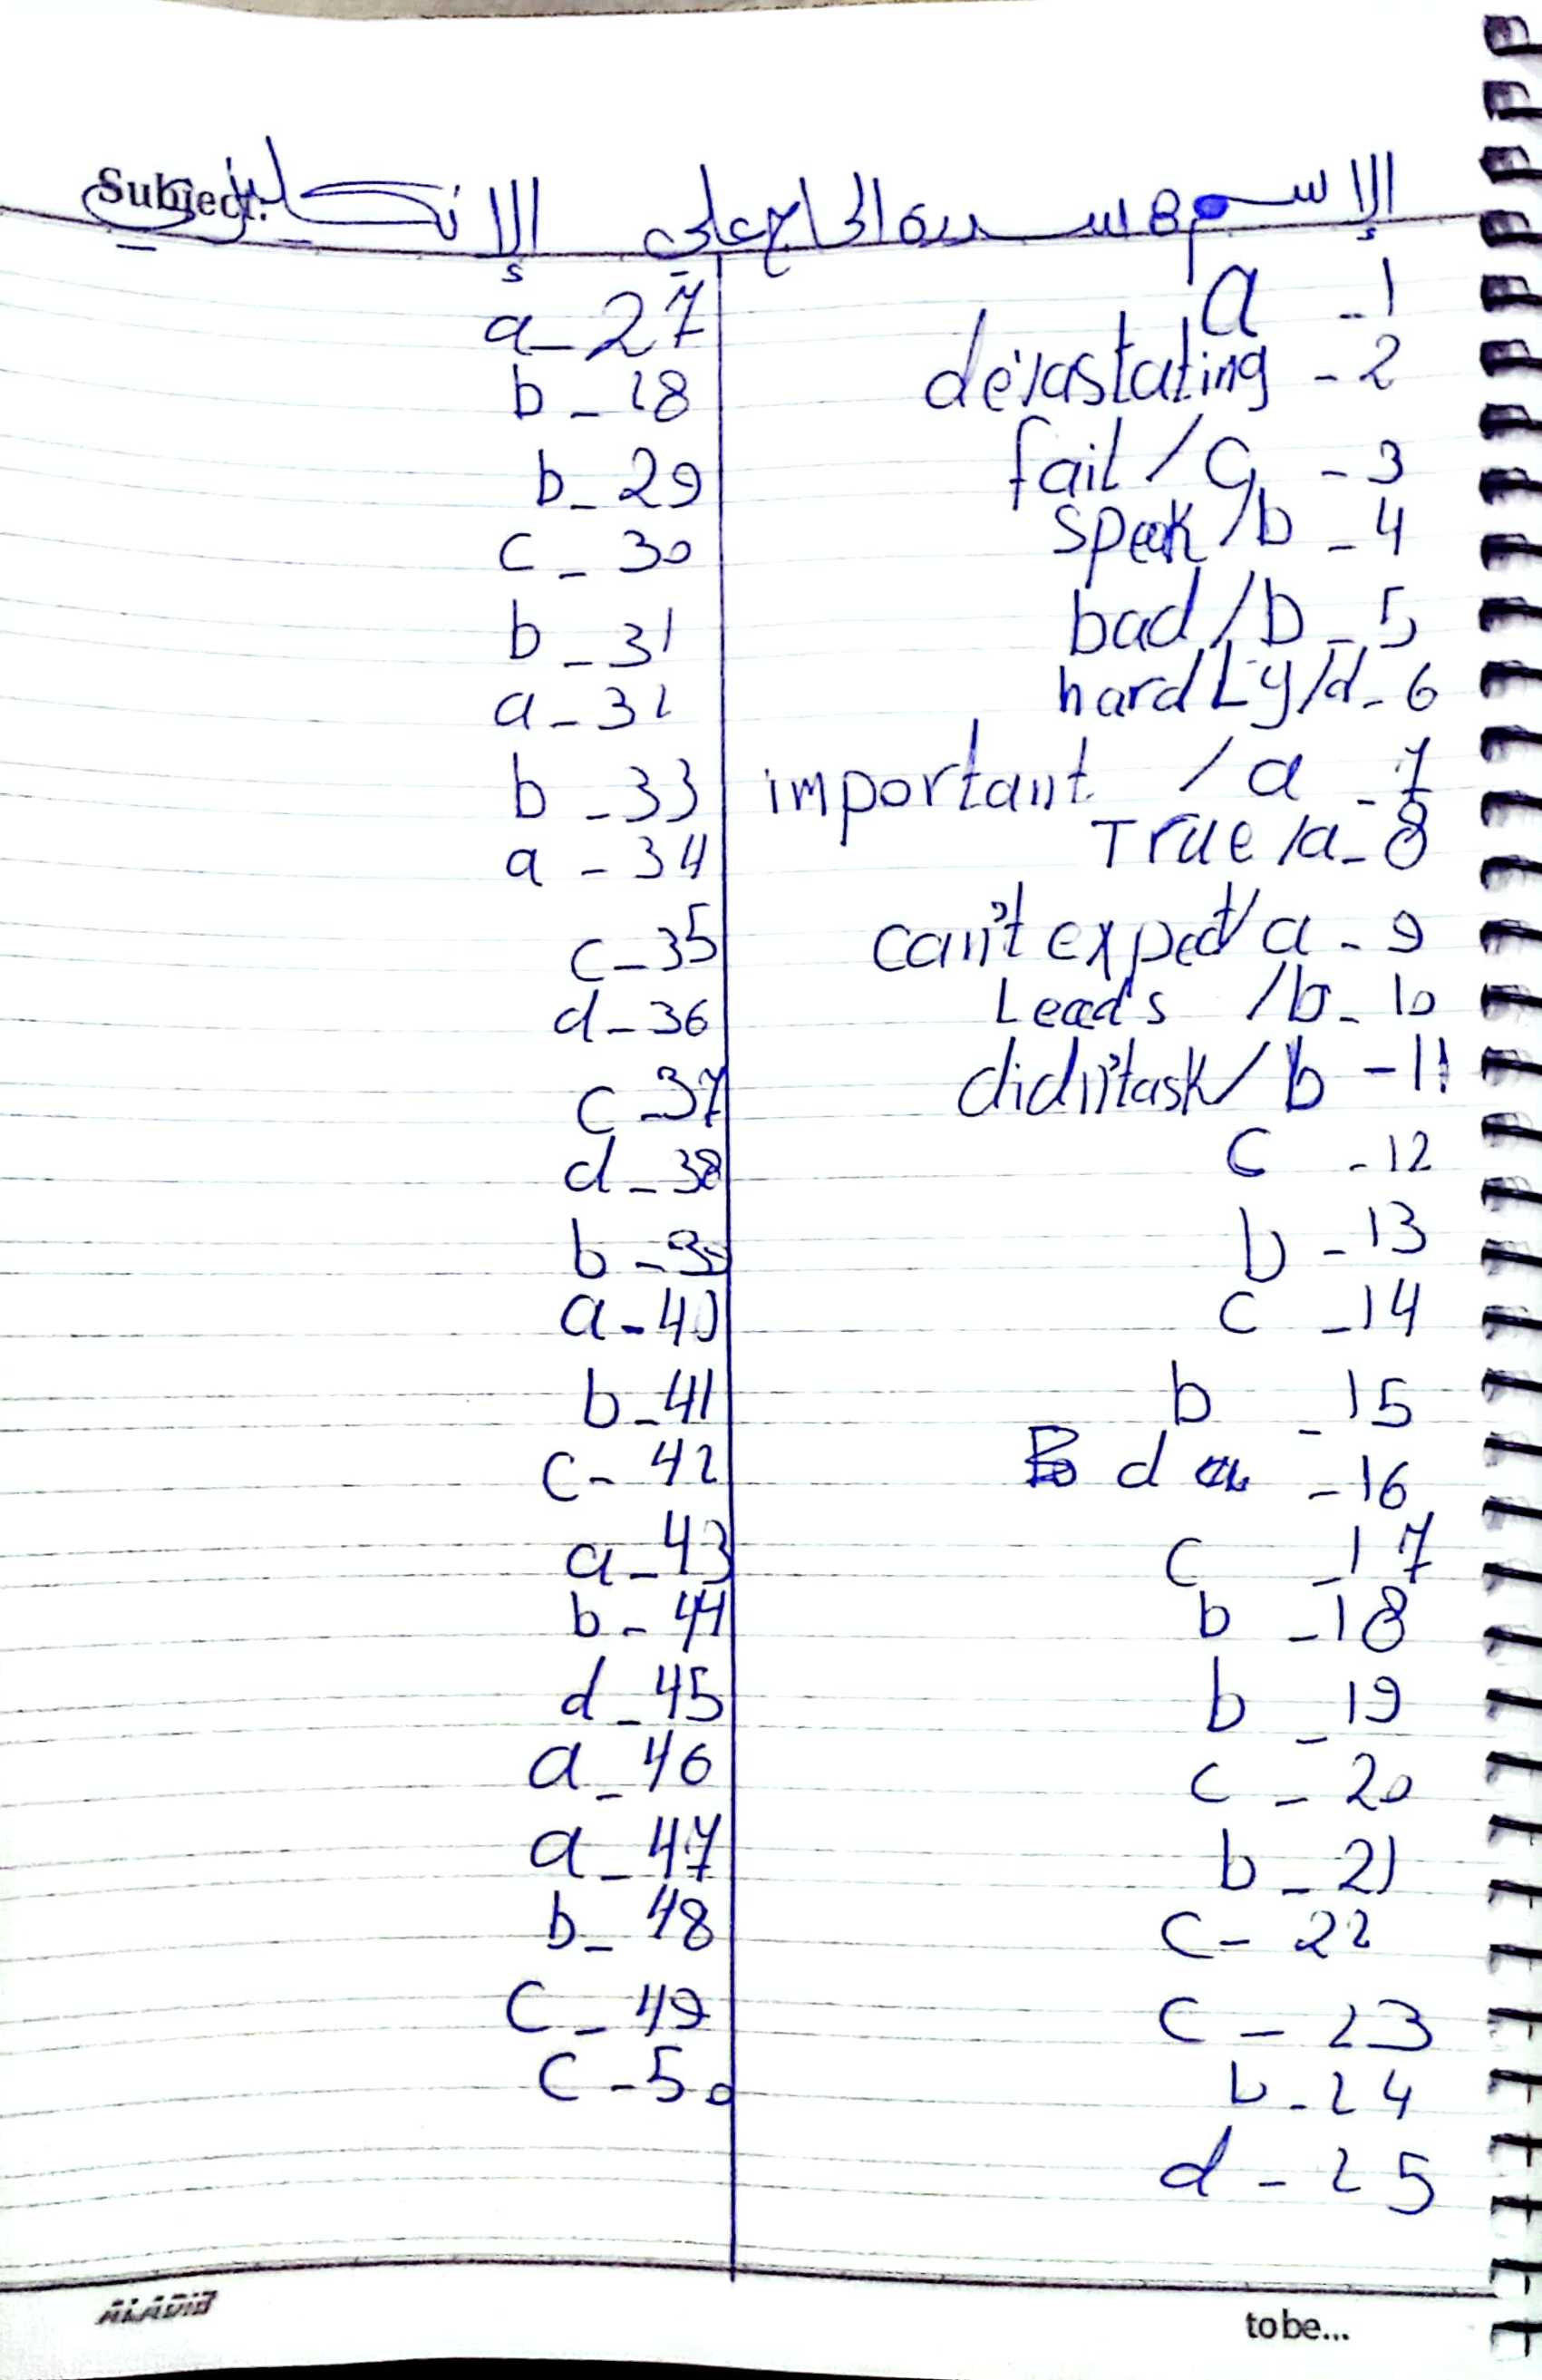 Subject:
الإسم: سدرة الحاج علي الإنكليزي
a - 1
devastating - 2
fail / a - 3
speak / b - 4
bad / b - 5
hardLy / d - 6
important / a - 7
True / a - 8
can't expect / a - 9
Leads / b - 10
didn't ask / b - 11
c - 12
b - 13
c - 14
b - 15
d - 16
c - 17
b - 18
b - 19
c - 20
b - 21
c - 22
c - 23
b - 24
d - 25
a - 27
b - 28
b - 29
c - 30
b - 31
a - 32
b - 33
a - 34
c - 35
d - 36
c - 37
d - 38
b - 39
a - 40
b - 41
c - 42
a - 43
b - 44
d - 45
a - 46
a - 47
b - 48
c - 49
c - 50
ALADIB
to be...